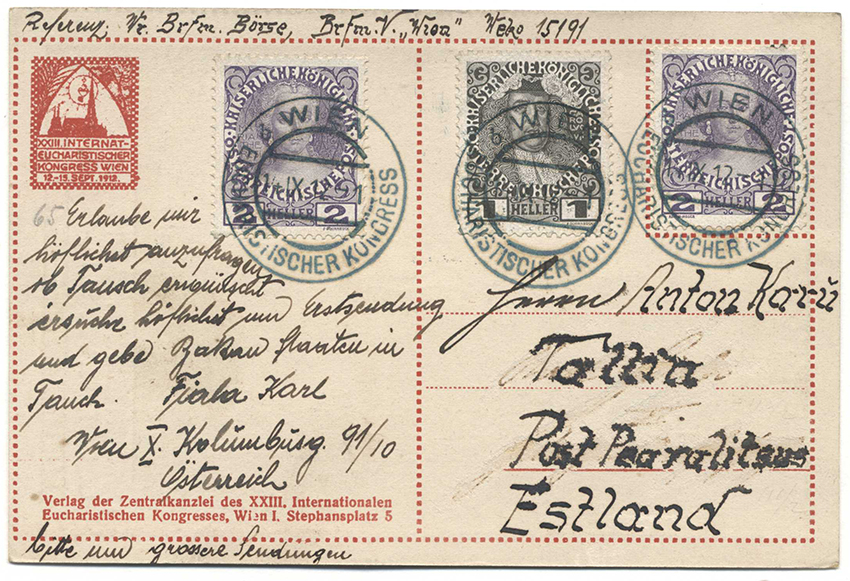 Referenz: Wr. Brfm. Börse, Brfm. V. „Wien" Weko 15/91
KAISERLICHE KÖNIGLICHE
ÖSTERREICHISCHE POST
2 HELLER 2
WIEN
EUCHARISTISCHER KONGRESS
KAISERLICHE KÖNIGLICHE
ÖSTERREICHISCHE POST
1 HELLER 1
WIEN
EUCHARISTISCHER KONGRESS
KAISERLICHE KÖNIGLICHE
ÖSTERREICHISCHE POST
2 HELLER 2
WIEN
EUCHARISTISCHER KONGRESS
XXIII. INTERNAT.
EUCHARISTISCHER
KONGRESS WIEN
12.-15. SEPT. 1912.
65 Erlaube mir
höflichst anzufragen
ob Tausch erwünscht
ersuche höflichst um Erstsendung
und gebe Balkan Staaten in
Tauch. Fiala Karl
Wien X. Kolumbusg. 91/10
Österreich
Verlag der Zentralkanzlei des XXIII. Internationalen
Eucharistischen Kongresses, Wien I. Stephansplatz 5
bitte um grossere Sendungen
Herrn Anton Karu
Tallin
Post Pearalitsus
Estland